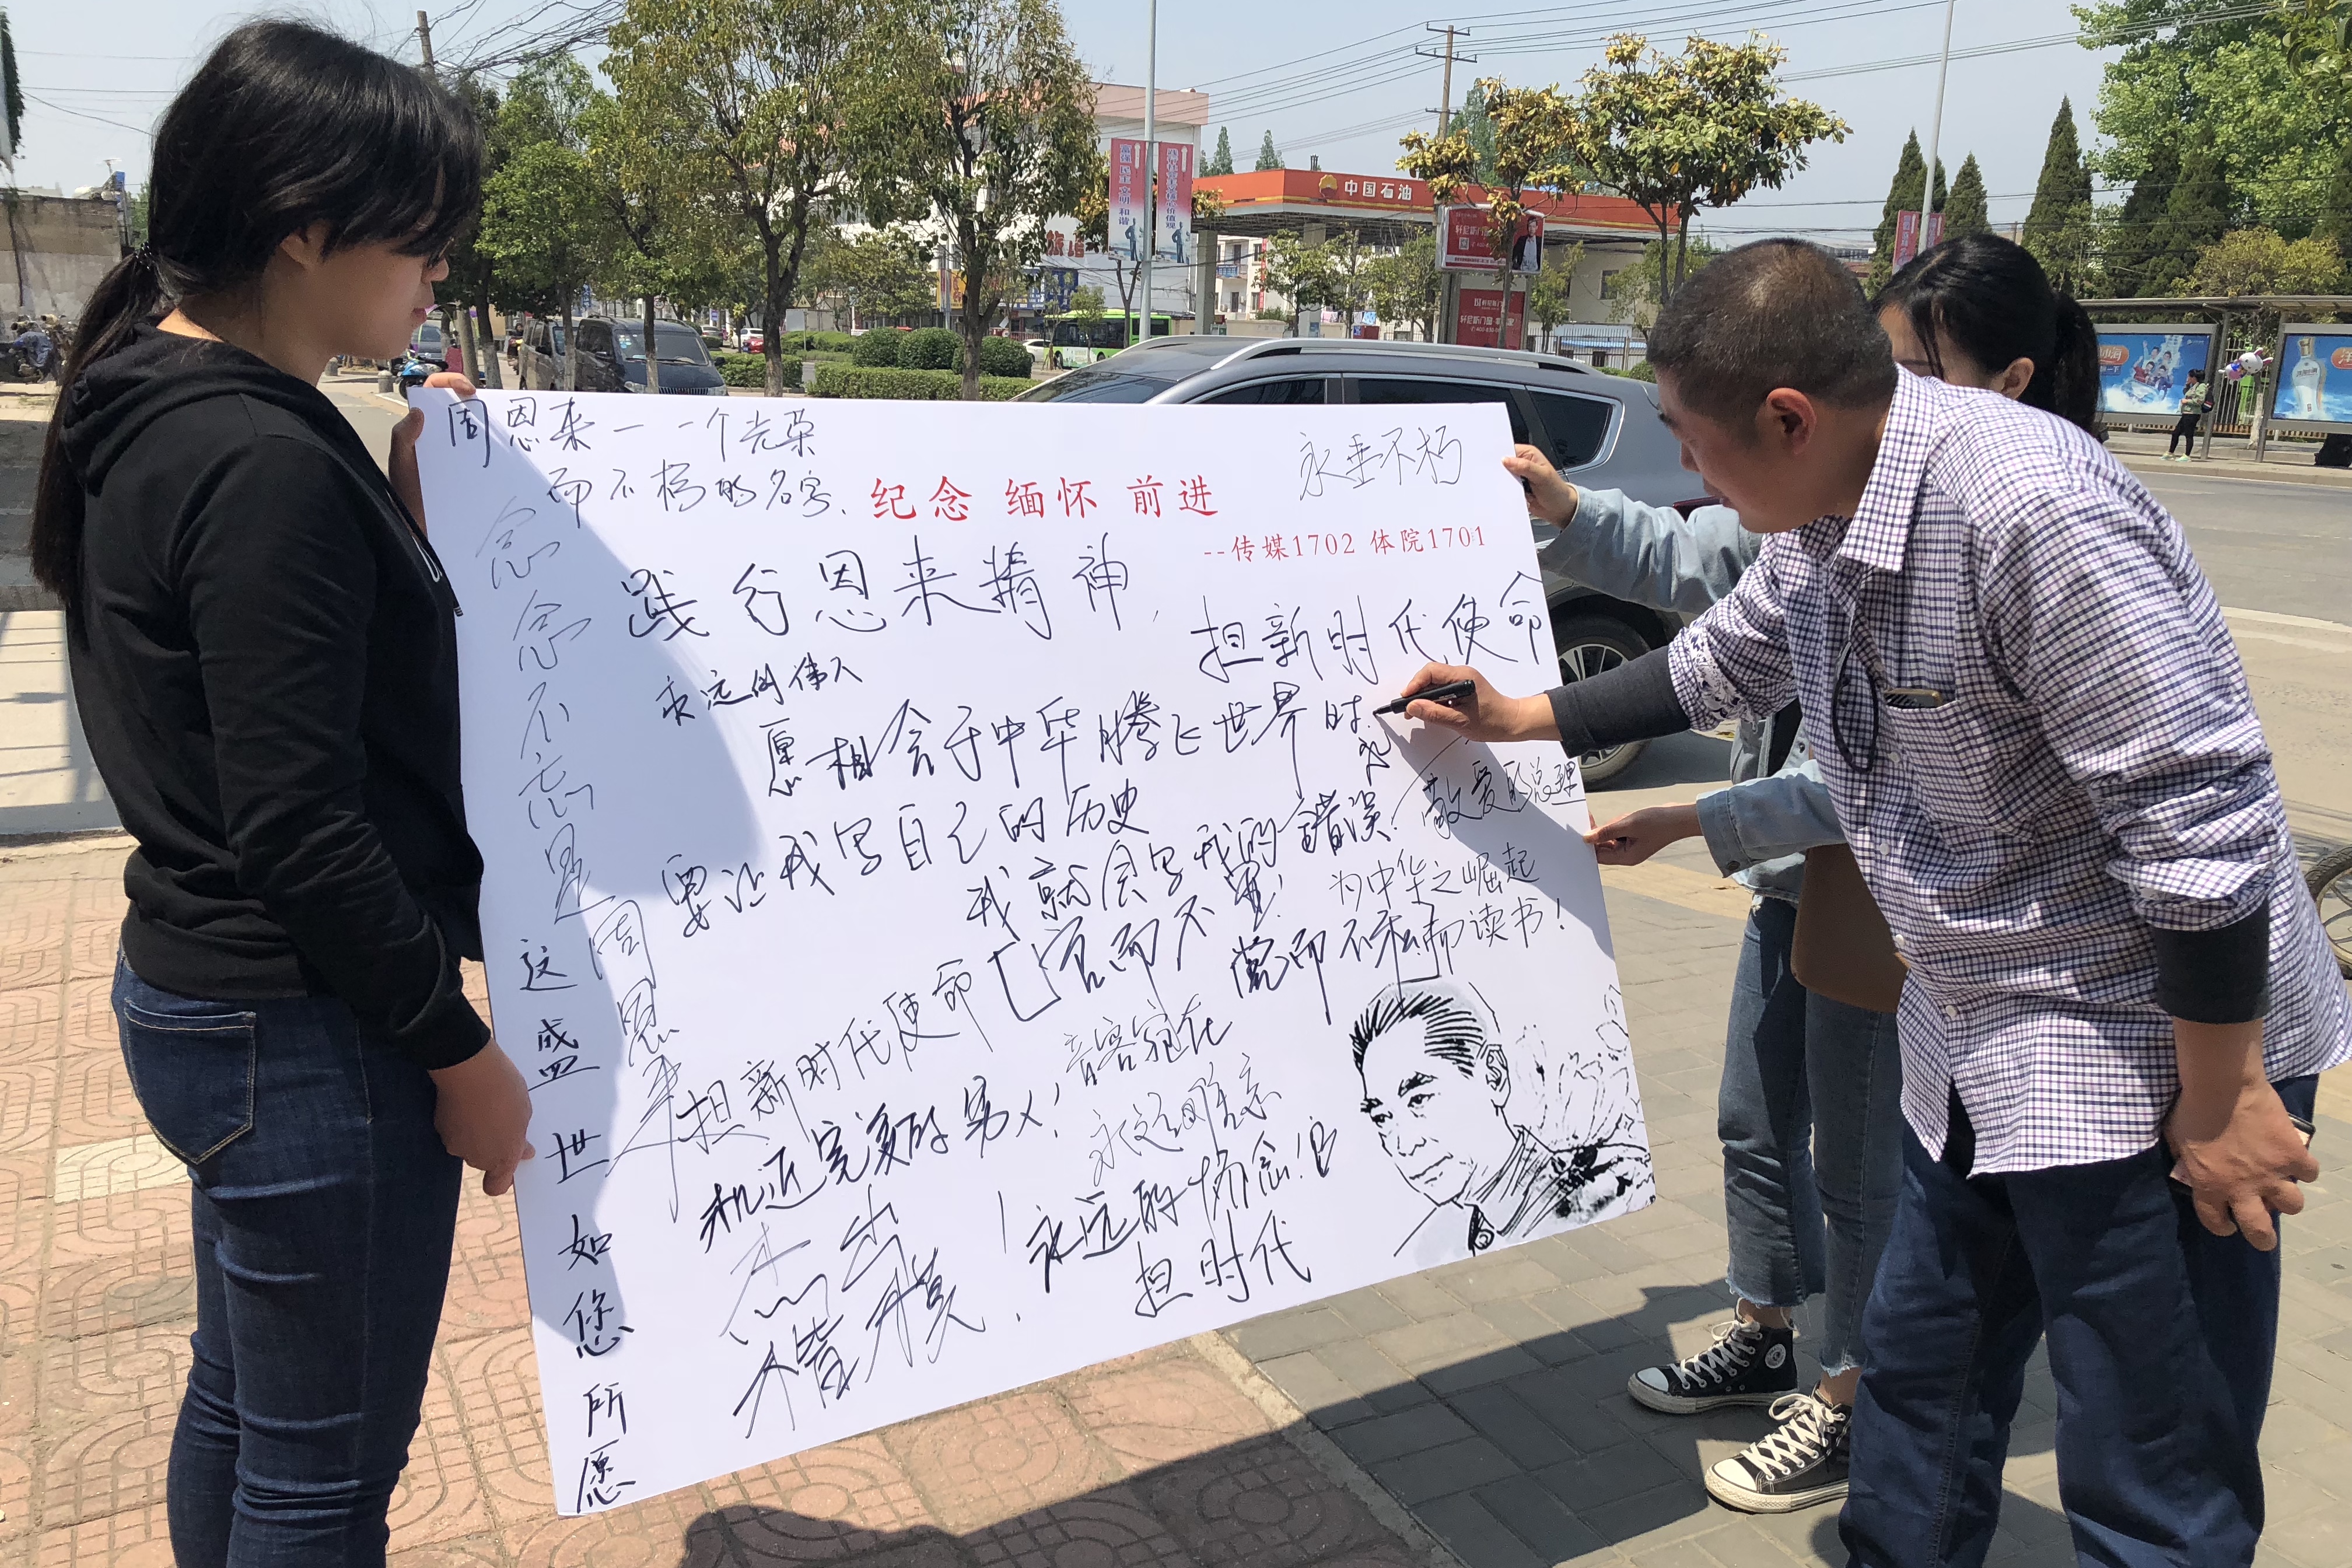 周恩来一一个光荣
而不朽的名字.
永垂不朽
纪念 缅怀 前进
--传媒1702 体院1701
践行恩来精神,
担新时代使命
永远的伟人
愿相会于中华腾飞世界时.
要让我写自己的历史
我就会写我的错误.
敬爱的总理
为中华之崛起
而读书!
官而不
党而不私
担新时代使命
音容宛在
永远难忘
机近完美的男人!
杰出
楷模!
永远的怀念!
担时代
念念不忘是周恩来
这盛世如您所愿
中国石油
富强 民主 文明 和谐